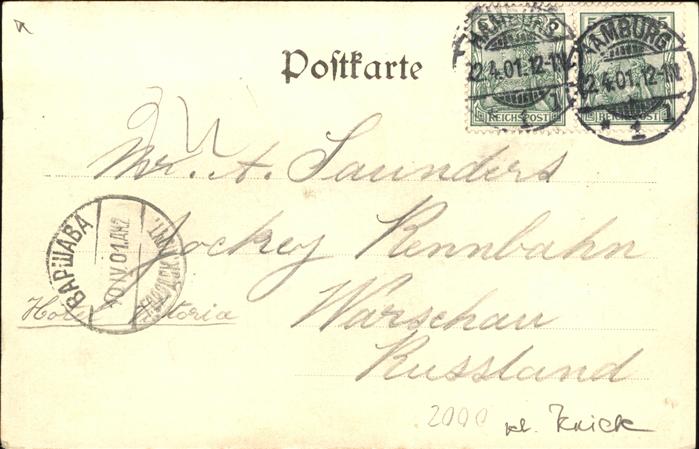 Postkarte
HAMBURG
22.4.01.12-1N.
* 1 1
HAMBURG
22.4.01.12-1N.
* 1 1
REICHSPOST
REICHSPOST
Mr. A. Saunders
Jockey Rennbahn
Warschau
Russland
ВАРШАВА
10 IV 01
Hotel Victoria
2000
kl. Knick